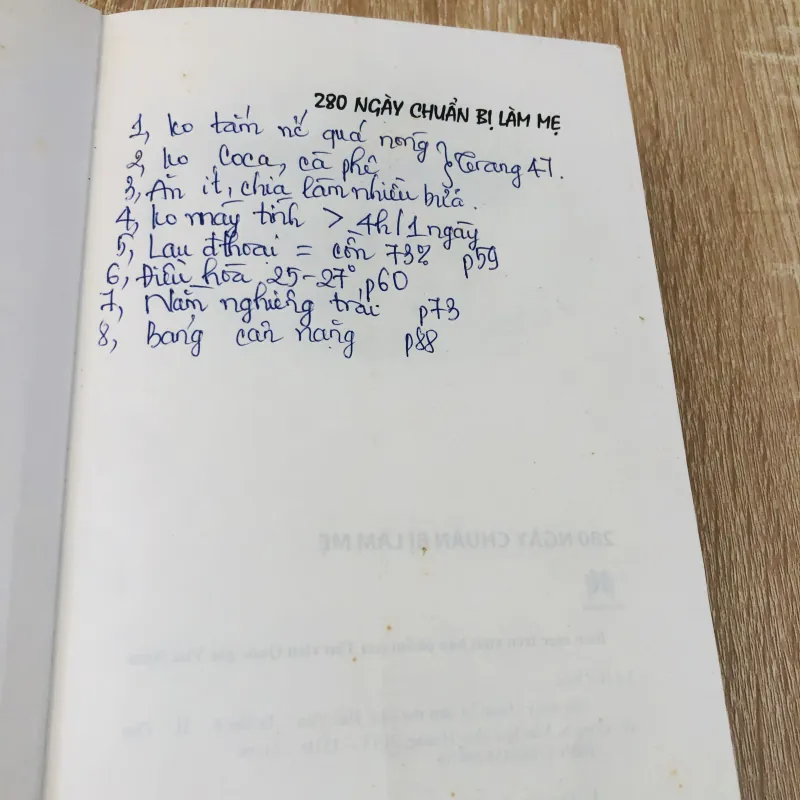 280 NGÀY CHUẨN BỊ LÀM MẸ
1, ko tắm nc quá nóng
2, ko Coca, cà phê } Trang 47.
3, Ăn ít, chia làm nhiều bữa.
4, ko máy tính > 4h/1 ngày
5, Lau đthoại = cồn 73% p59
6, Điều hòa 25-27°, p60
7, Nằm nghiêng trái p73
8, Bảng cân nặng p88
280 NGÀY CHUẨN BỊ LÀM MẸ